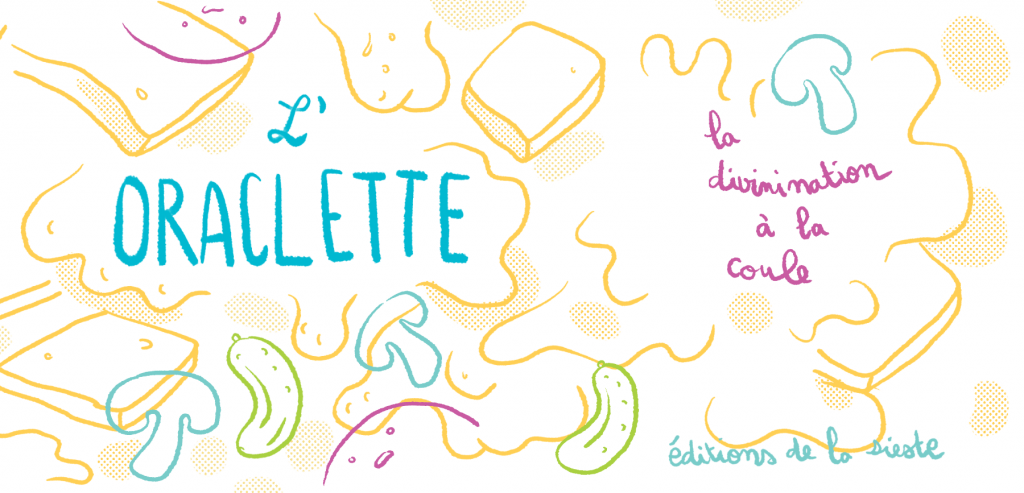 L'
ORACLETTE
la
divinination
à la
coule
éditions de la sieste